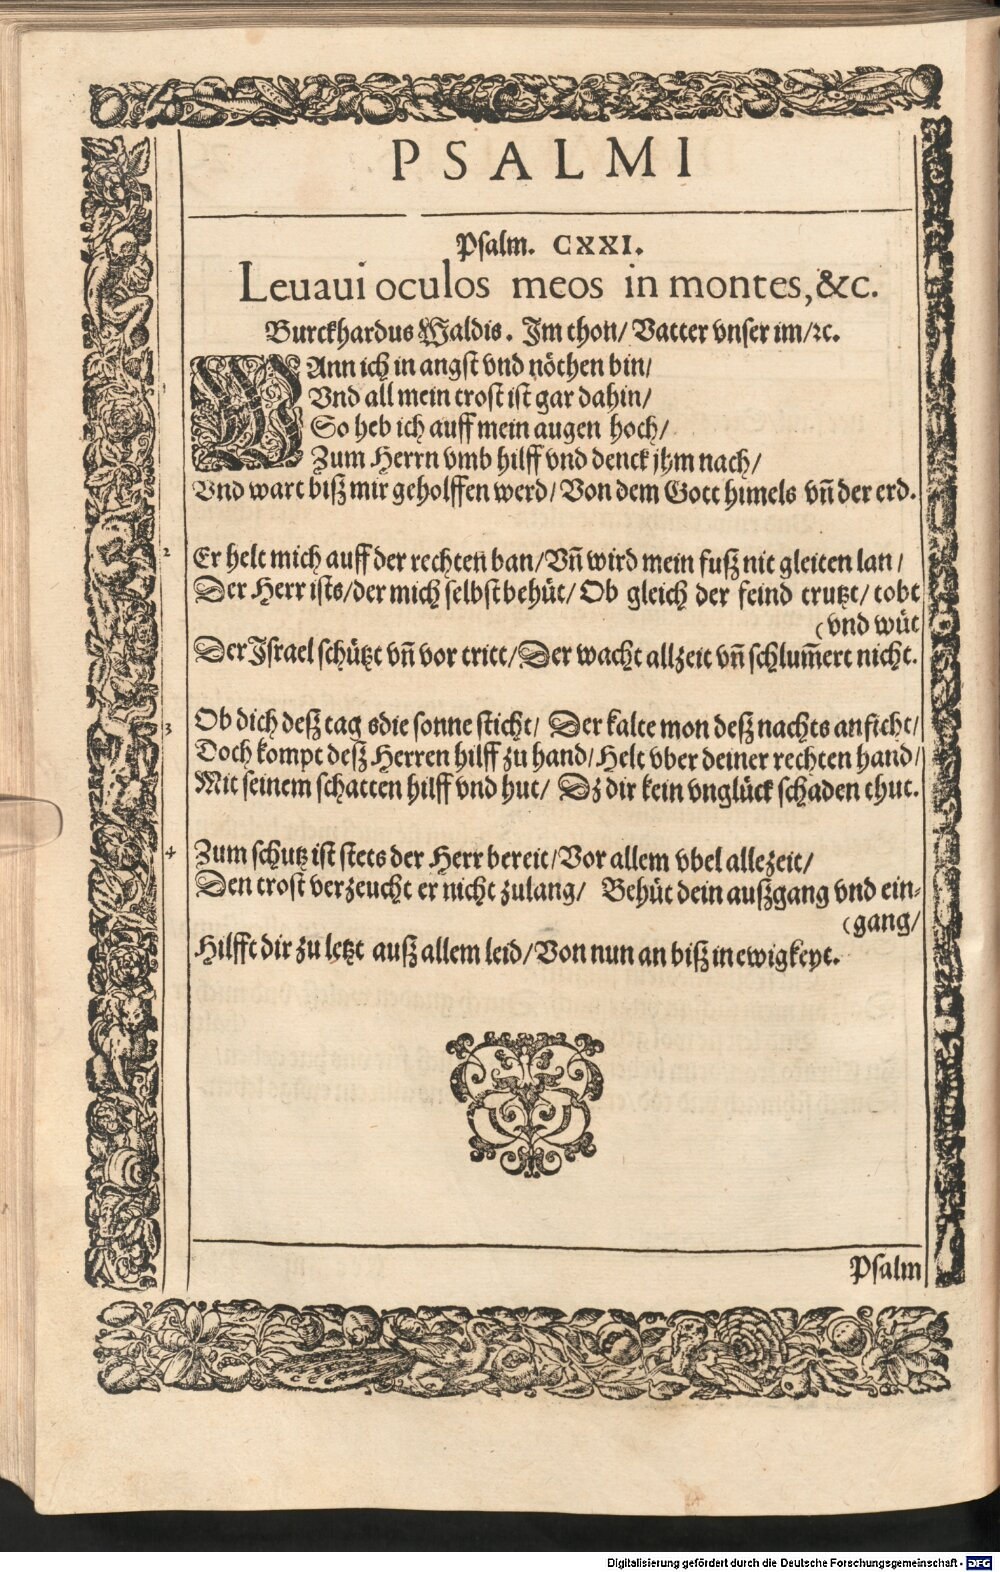 PSALMI
Psalm. CXXI.
Leuaui oculos meos in montes, &c.
Burckhardus Waldis. Im thon/ Vatter vnser im/ ꝛc.
WAnn ich in angst vnd nöthen bin/
Vnd all mein trost ist gar dahin/
So heb ich auff mein augen hoch/
Zum Herrn vmb hilff vnd denck jhm nach/
Vnd wart biß mir geholffen werd/ Von dem Gott himels vñ der erd.
2 Er helt mich auff der rechten ban/ Vñ wird mein fuß nit gleiten lan/
Der Herr ists/ der mich selbst behüt/ Ob gleich der feind trutzt/ tobt
(vnd wüt
Der Israel schützt vñ vor tritt/ Der wacht allzeit vñ schlum̃ert nicht.
3 Ob dich deß tag sdie sonne sticht/ Der kalte mon deß nachts anficht/
Doch kompt deß Herren hilff zu hand/ Helt vber deiner rechten hand/
Mit seinem schatten hilff vnd hut/ Dz dir kein vnglück schaden thut.
4 Zum schutz ist stets der Herr bereit/ Vor allem vbel allezeit/
Den trost verzeucht er nicht zulang/ Behüt dein außgang vnd ein-
(gang/
Hilfft dir zu letzt auß allem leid/ Von nun an biß in ewigkeyt.
Psalm
Digitalisierung gefördert durch die Deutsche Forschungsgemeinschaft - DFG